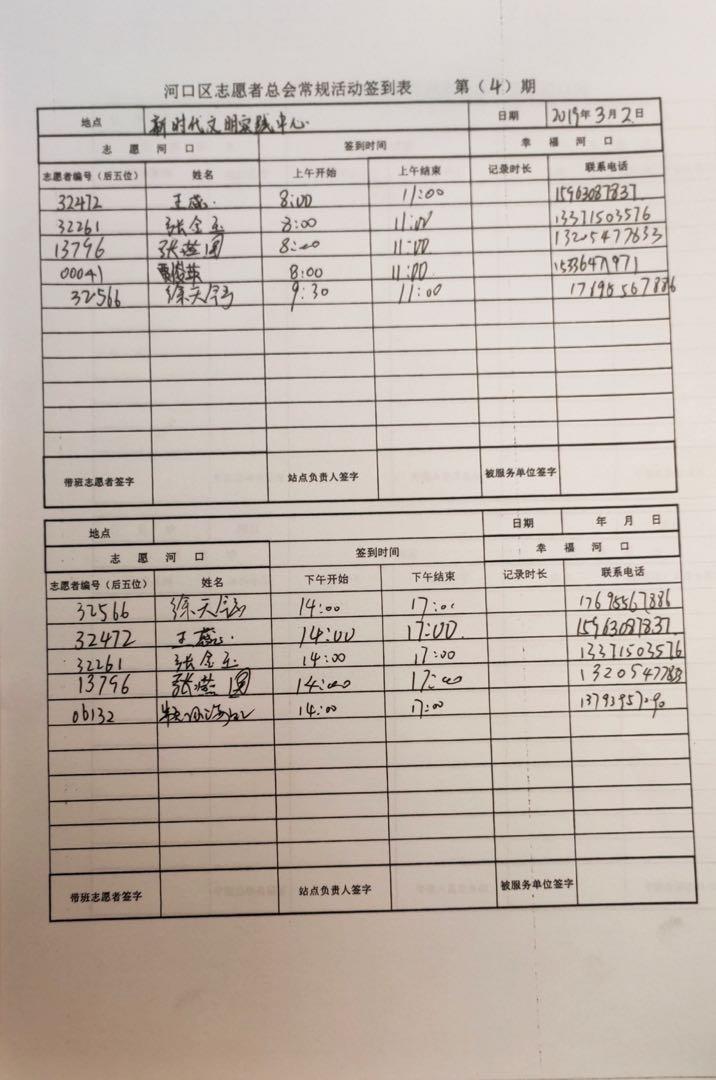 河口区志愿者总会常规活动签到表 第（4）期
地点 新时代文明实践中心 日期 2019年3月2日
志愿河口 签到时间 幸福河口
志愿者编号（后五位） 姓名 上午开始 上午结束 记录时长 联系电话
32472 王蕊 8:00 11:00 15963087837
32261 张金玉 8:00 11:00 13371503576
13796 张燕圆 8:00 11:00
00041 8:00 11:00 15336471971
32566 徐天 9:30 11:00 17695567886
带班志愿者签字 站点负责人签字 被服务单位签字
地点 日期 年 月 日
志愿河口 签到时间 幸福河口
志愿者编号（后五位） 姓名 下午开始 下午结束 记录时长 联系电话
32566 徐天 14:00 17:00 17695567886
32472 王蕊 14:00 17:00 15963087837
32261 张金玉 14:00 17:00 13371503576
13796 张燕圆 14:00 17:00
06132 14:00 17:00 13793957090
带班志愿者签字 站点负责人签字 被服务单位签字